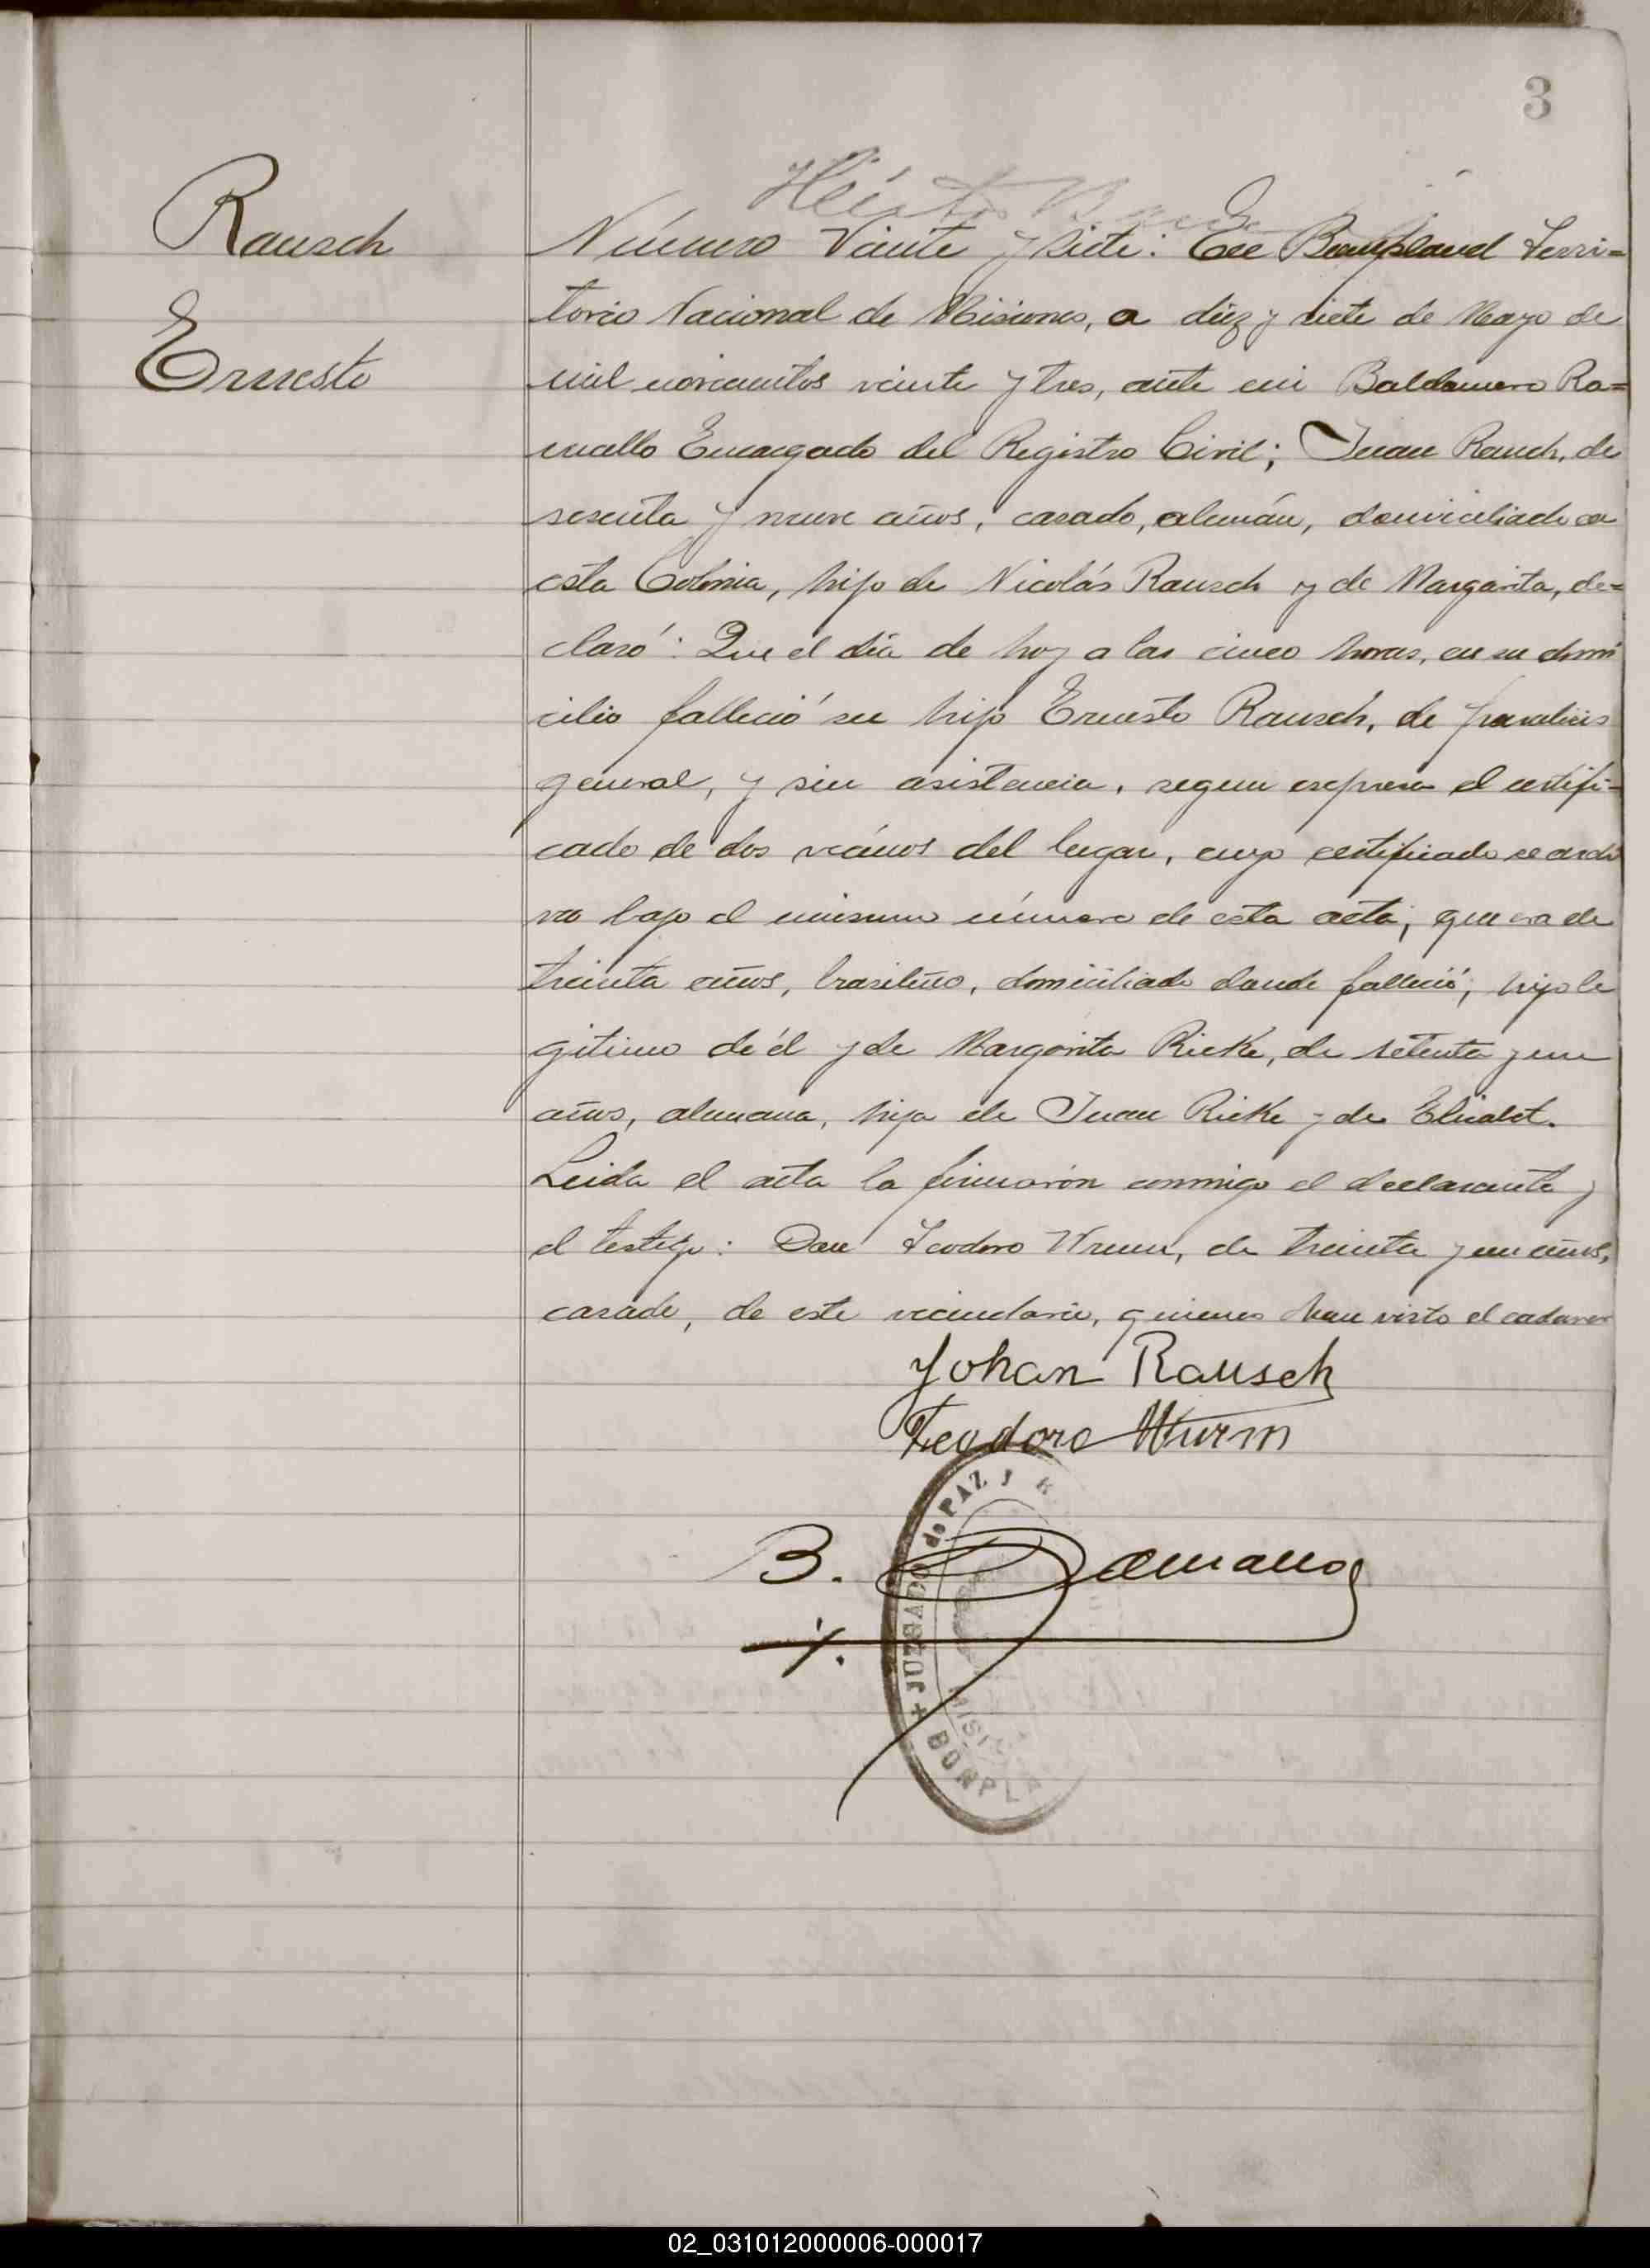 3
Rausch
Ernesto
Número Veinte y siete: En Bompland Terri=
torio Nacional de Misiones, a diez y siete de Mayo de
mil novecientos veinte y tres, ante mi Baldomero Ra=
mallo Encargado del Registro Civil; Juan Rauch, de
sesenta y nueve años, casado, alemán, domiciliado en
esta Colonia, hijo de Nicolás Rausch y de Margarita, de=
claró: Que el día de hoy a las cinco horas, en su domi
cilio falleció su hijo Ernesto Rausch, de paralicis
general, y sin asistencia, segun expresa el certifi=
cado de dos vecinos del lugar, cuyo certificado se archi
vo bajo el mismo número de esta acta; que era de
treinta años, brasileño, domiciliado donde falleció; hijo le
gitimo de él y de Margarita Rieke, de setenta y un
años, alemana, hija de Juan Rieke y de Elisabet.
Leida el acta la firmarón conmigo el declarante y
el testigo: Don Teodoro Wrum, de treinta y un años,
casado, de este vecindario, quienes han visto el cadaver
Johan Rausch
Teodoro Wurm
B. Ramallo
+ JUZGADO de PAZ y R
MISI
BONPLA
02_031012000006-000017